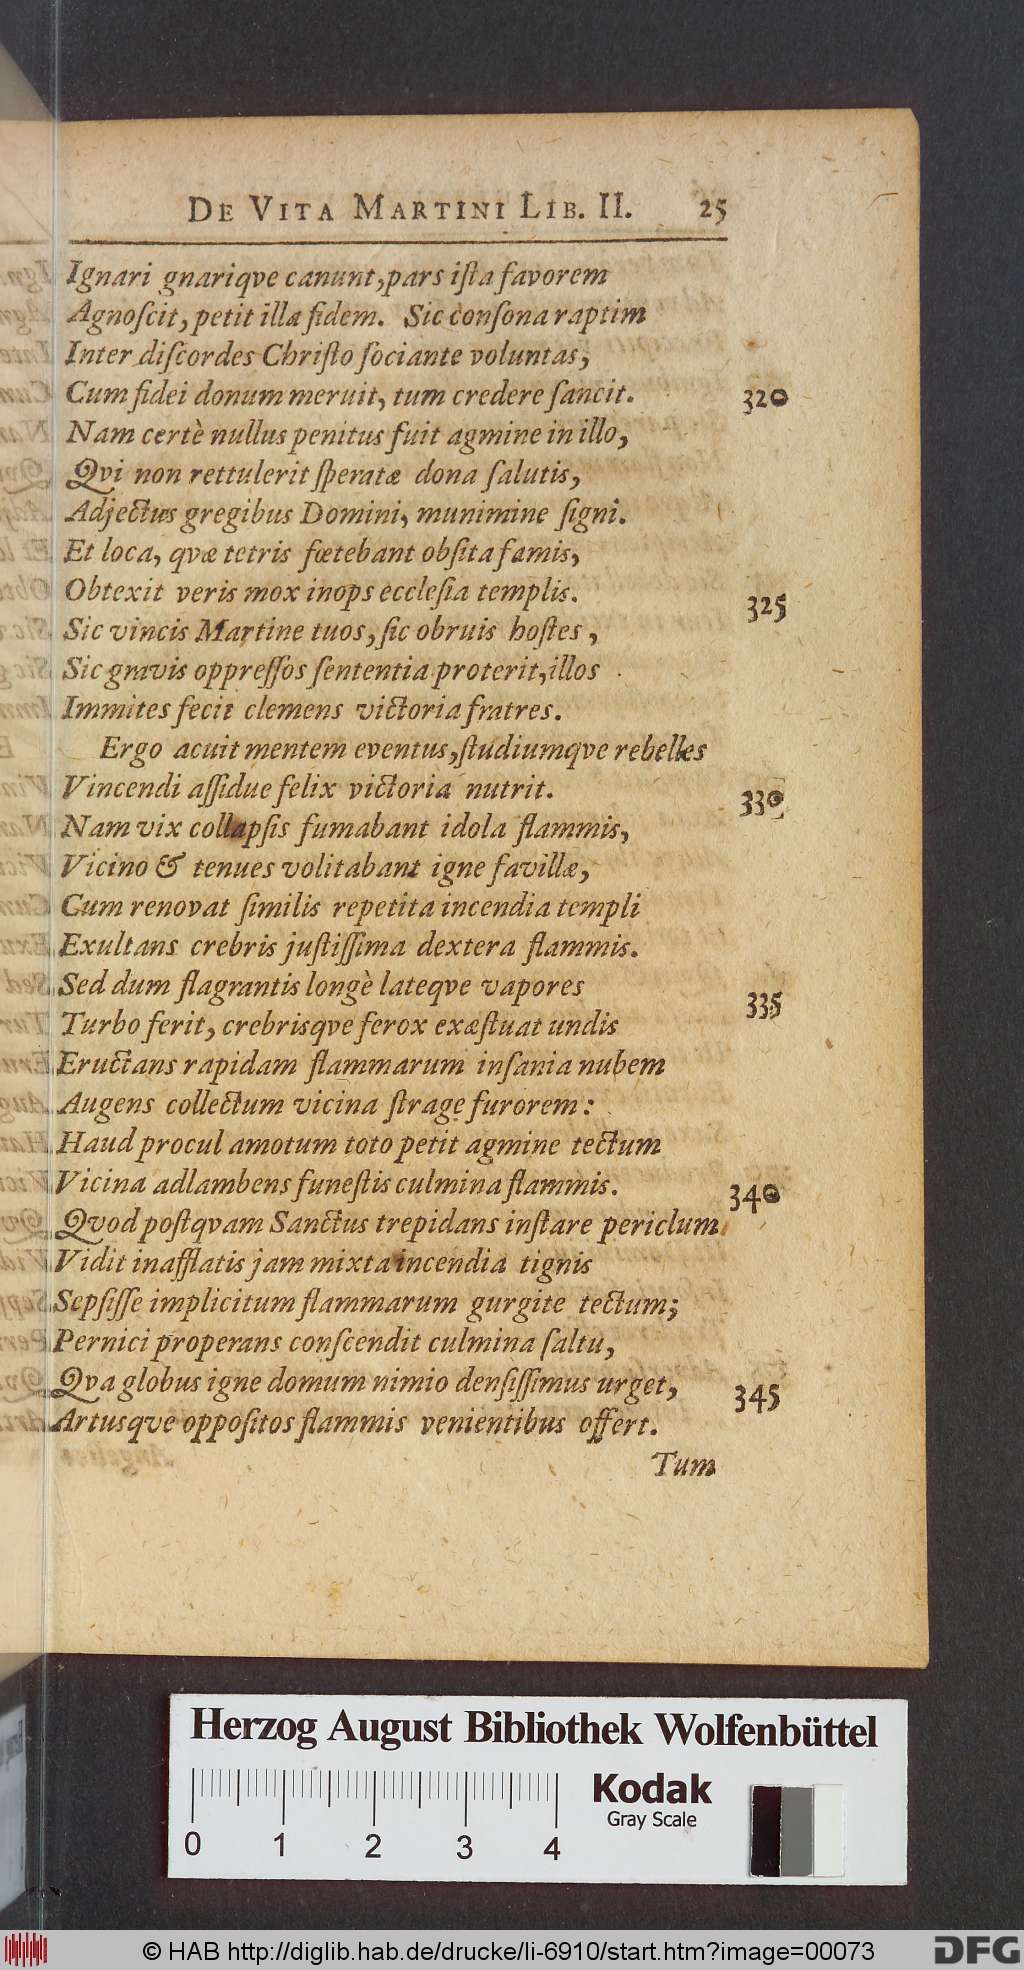 DE VITA MARTINI LIB. II. 25
Ignari gnariqve canunt, pars iſta favorem
Agnoſcit, petit illa fidem. Sic conſona raptim
Inter diſcordes Chriſto ſociante voluntas,
Cum fidei donum meruit, tum credere ſancit. 320
Nam certè nullus penitus fuit agmine in illo,
Qvi non rettulerit ſperatæ dona ſalutis,
Adjectus gregibus Domini, munimine ſigni.
Et loca, qvæ tetris fœtebant obſita famis,
Obtexit veris mox inops eccleſia templis. 325
Sic vincis Martine tuos, ſic obruis hoſtes,
Sic gravis oppreſſos ſententia proterit, illos
Immites fecit clemens victoria fratres.
Ergo acuit mentem eventus, ſtudiumqve rebelles
Vincendi aſſidue felix victoria nutrit. 330
Nam vix collapſis fumabant idola flammis,
Vicino & tenues volitabant igne favillæ,
Cum renovat ſimilis repetita incendia templi
Exultans crebris juſtiſſima dextera flammis.
Sed dum flagrantis longè lateqve vapores 335
Turbo ferit, crebrisqve ferox exæſtuat undis
Eructans rapidam flammarum inſania nubem
Augens collectum vicina ſtrage furorem:
Haud procul amotum toto petit agmine tectum
Vicina adlambens funeſtis culmina flammis. 340
Qvod poſtqvam Sanctus trepidans inſtare periclum
Vidit inafflatis jam mixta incendia tignis
Sepſiſſe implicitum flammarum gurgite tectum;
Pernici properans conſcendit culmina ſaltu,
Qva globus igne domum nimio denſiſſimus urget, 345
Artusqve oppoſitos flammis venientibus offert.
Tum
Herzog August Bibliothek Wolfenbüttel
0 1 2 3 4
Kodak
Gray Scale
© HAB http://diglib.hab.de/drucke/li-6910/start.htm?image=00073
DFG